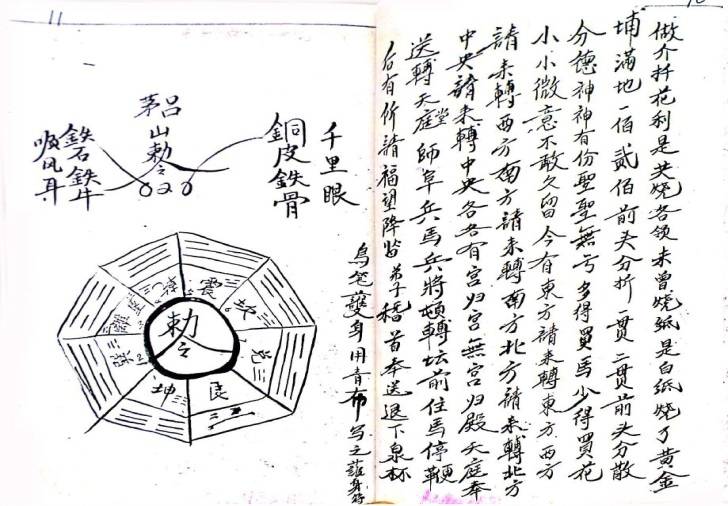 10
做介扦花利是共燒各領未曾燒紙是白紙燒了黃金
埔滿地一佰貳佰前头分折一貫二貫前头分散
分德神神有份聖聖無亏多得買馬少得買花
小小微意不敢久留今有東方請来轉東方西方
請来轉西方南方請来轉南方北方請来轉北方
中央請来轉中央各各有宫归宫無宫归殿天庭奉
送轉天庭堂師阜兵馬兵將頓轉坛前住馬停鞭
后有所請福望降臨弟子稽首奉送退下泉杯
烏笔護身用青布写之護身符
11
千里眼
銅皮鉄骨
茅山吕勅令
鉄石鉄牛
順风耳
勅令
震
兌
艮
坤